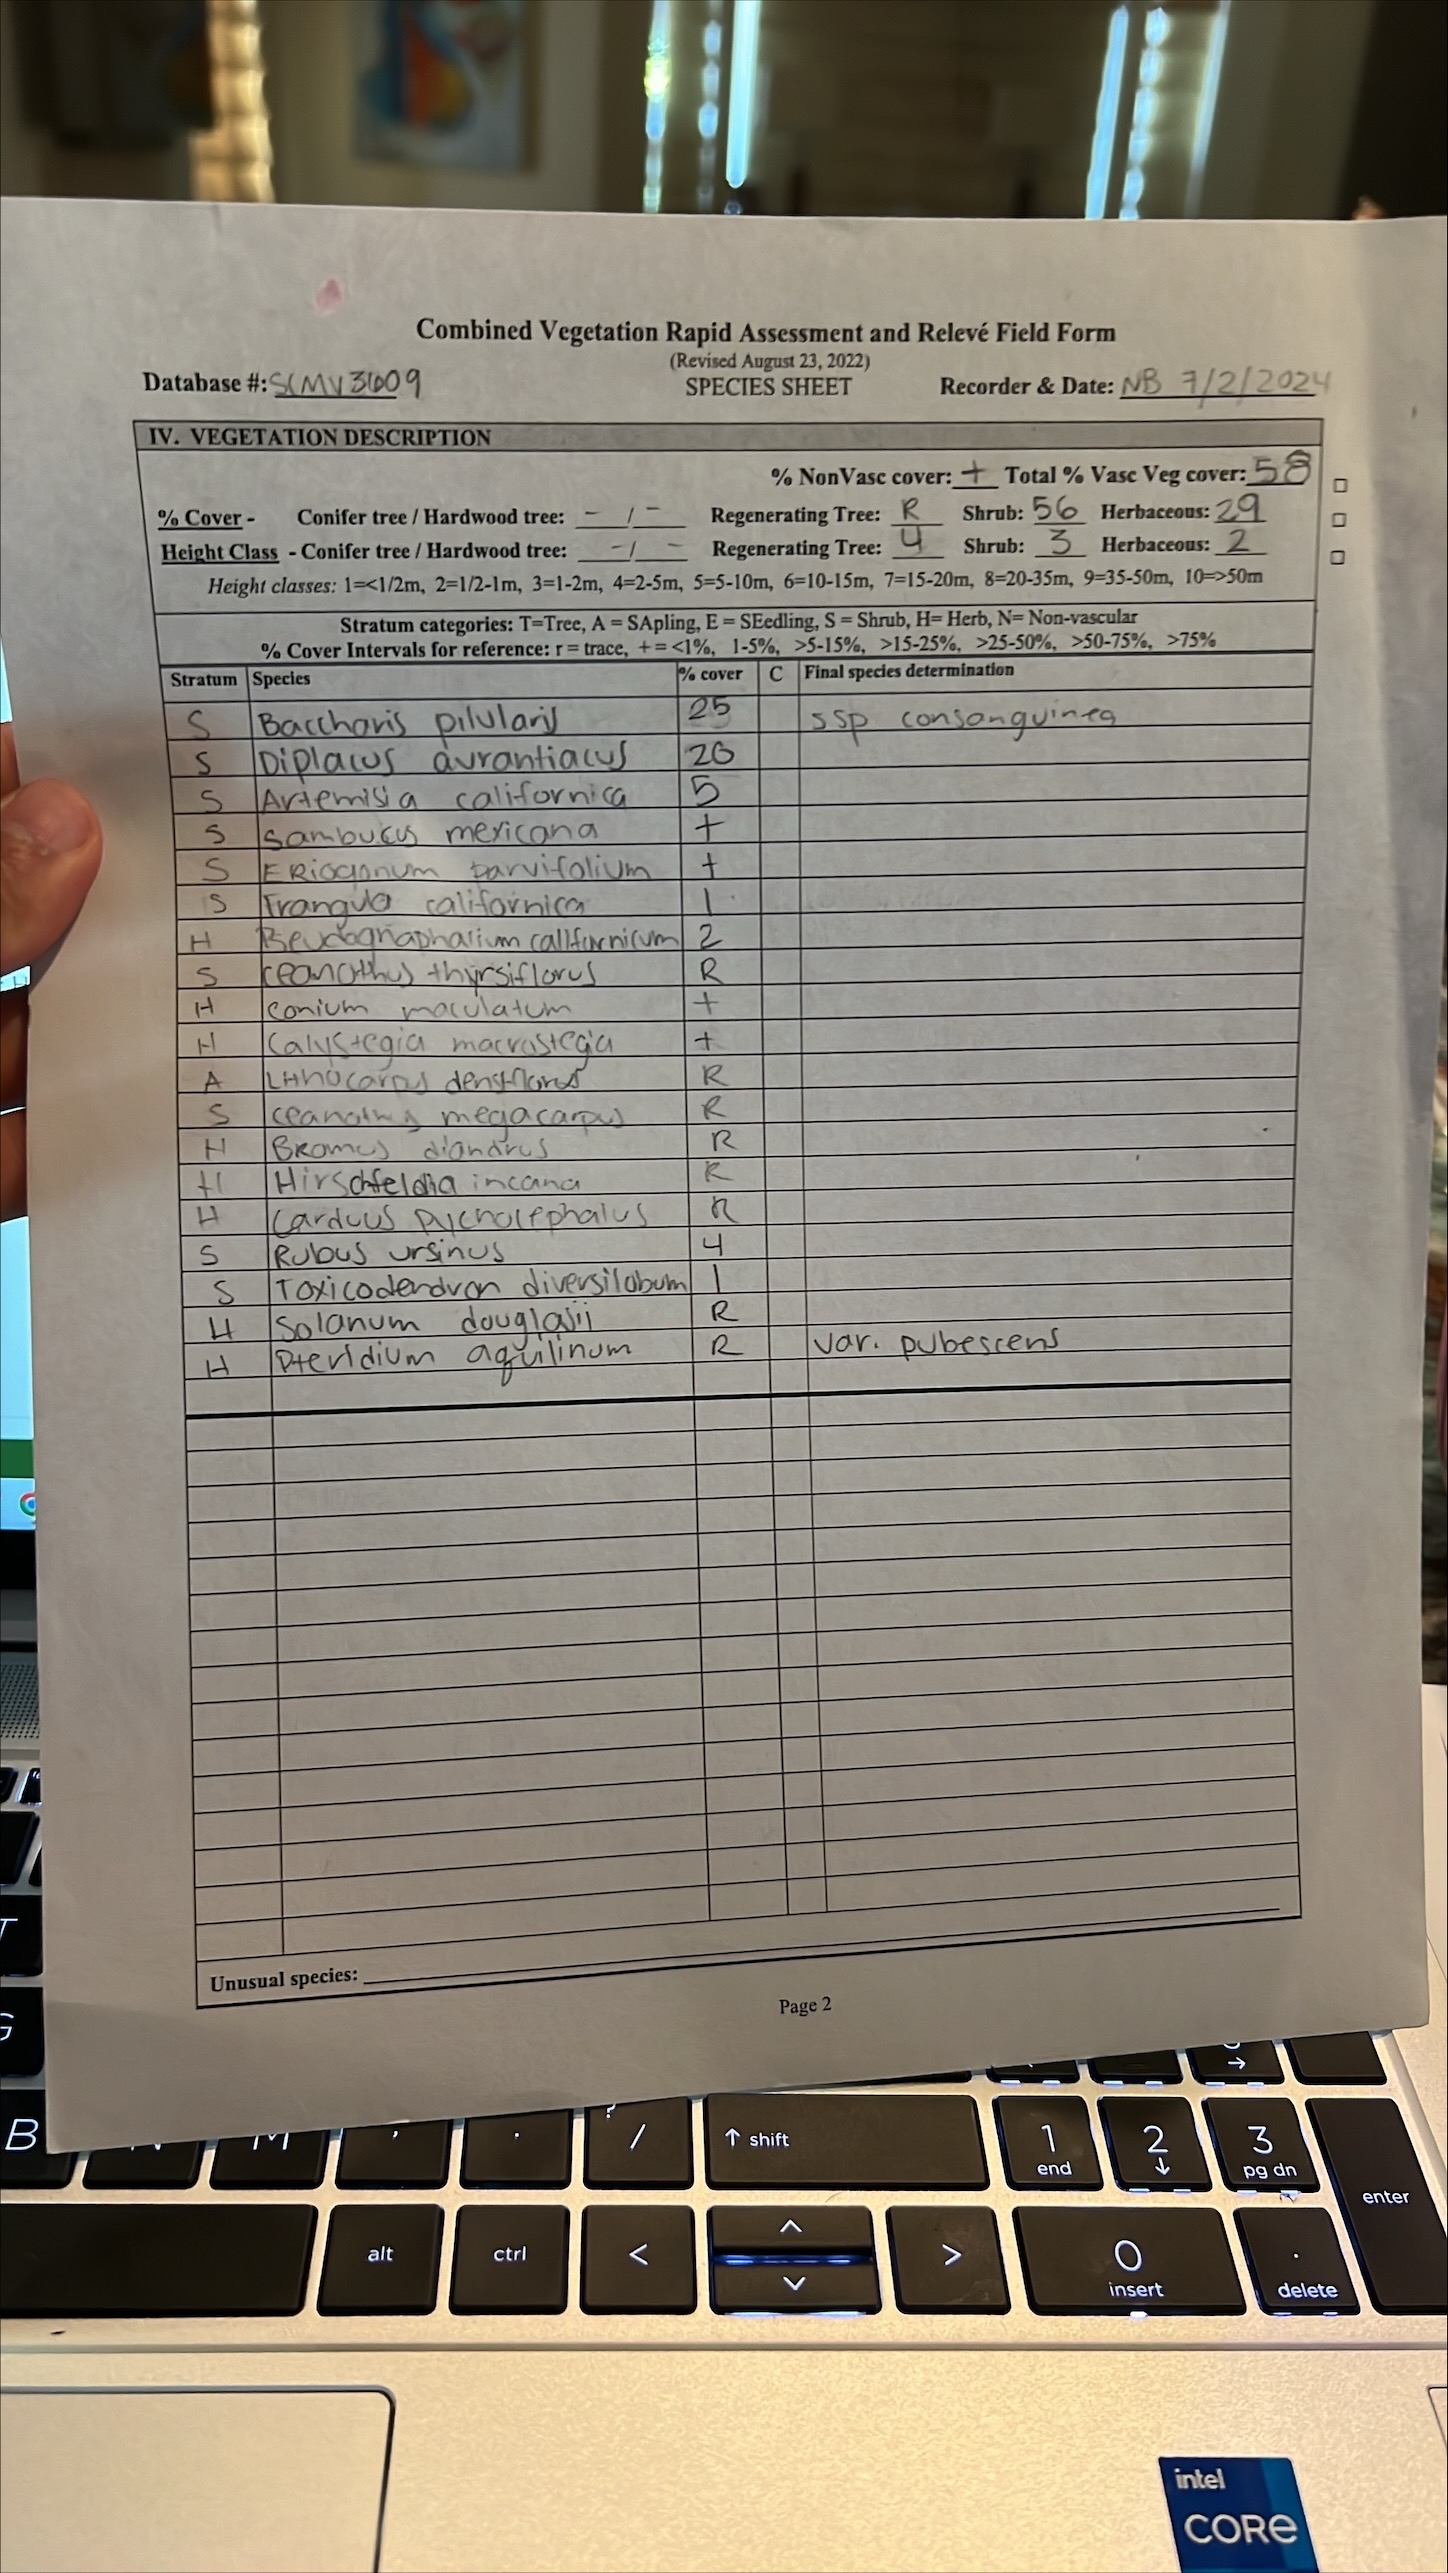 Combined Vegetation Rapid Assessment and Relevé Field Form
(Revised August 23, 2022)
Database #: SCMV3609 SPECIES SHEET Recorder & Date: NB 7/2/2024
IV. VEGETATION DESCRIPTION
% NonVasc cover: + Total % Vasc Veg cover: 58
% Cover - Conifer tree / Hardwood tree: - / - Regenerating Tree: R Shrub: 56 Herbaceous: 29
Height Class - Conifer tree / Hardwood tree: - / - Regenerating Tree: 4 Shrub: 3 Herbaceous: 2
Height classes: 1=<1/2m, 2=1/2-1m, 3=1-2m, 4=2-5m, 5=5-10m, 6=10-15m, 7=15-20m, 8=20-35m, 9=35-50m, 10=>50m
Stratum categories: T=Tree, A = SApling, E = SEedling, S = Shrub, H= Herb, N= Non-vascular
% Cover Intervals for reference: r = trace, + = <1%, 1-5%, >5-15%, >15-25%, >25-50%, >50-75%, >75%
Stratum Species % cover C Final species determination
S Baccharis pilularis 25 ssp consanguinea
S Diplacus aurantiacus 20
S Artemisia californica 5
S Sambucus mexicana +
S ERiogonum parvifolium +
S Frangula californica 1
H Pseudognaphalium californicum 2
S Ceanothus thyrsiflorus R
H Conium maculatum +
H Calystegia macrostegia +
A Lithocarpus densiflorus R
S Ceanothus megacarpus R
H BRomus diandrus R
H Hirschfeldia incana R
H Carduus pycnocephalus R
S Rubus ursinus 4
S Toxicodendron diversilobum 1
H Solanum douglasii R
H Pteridium aquilinum R var. pubescens
Unusual species:
Page 2
B N M , . ? / ↑ shift 1 end 2 ↓ 3 pg dn enter
alt ctrl < > 0 insert . delete
intel
CORe